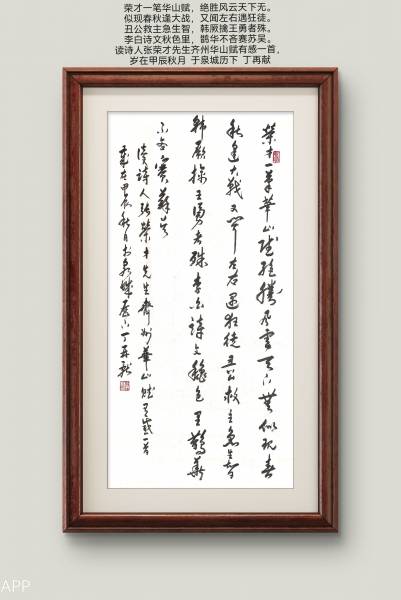 荣才一笔华山赋，绝胜风云天下无。
似现春秋逢大战，又闻左右遇狂徒。
丑公救主急生智，韩厥擒王勇者殊。
李白诗文秋色里，鹊华不吝赛苏吴。
读诗人张荣才先生齐州华山赋有感一首，
岁在甲辰秋月 于泉城历下 丁再献
荣才一笔华山赋绝胜风云天下無似现春
秋逢大战又闻左右遇狂徒丑公救主急生智
韩厥擒王勇者殊李白诗文秋色里鹊華
不吝赛蘇吴
读诗人张荣才先生齐州華山赋有感一首
岁在甲辰秋月於泉城历下丁再献
APP